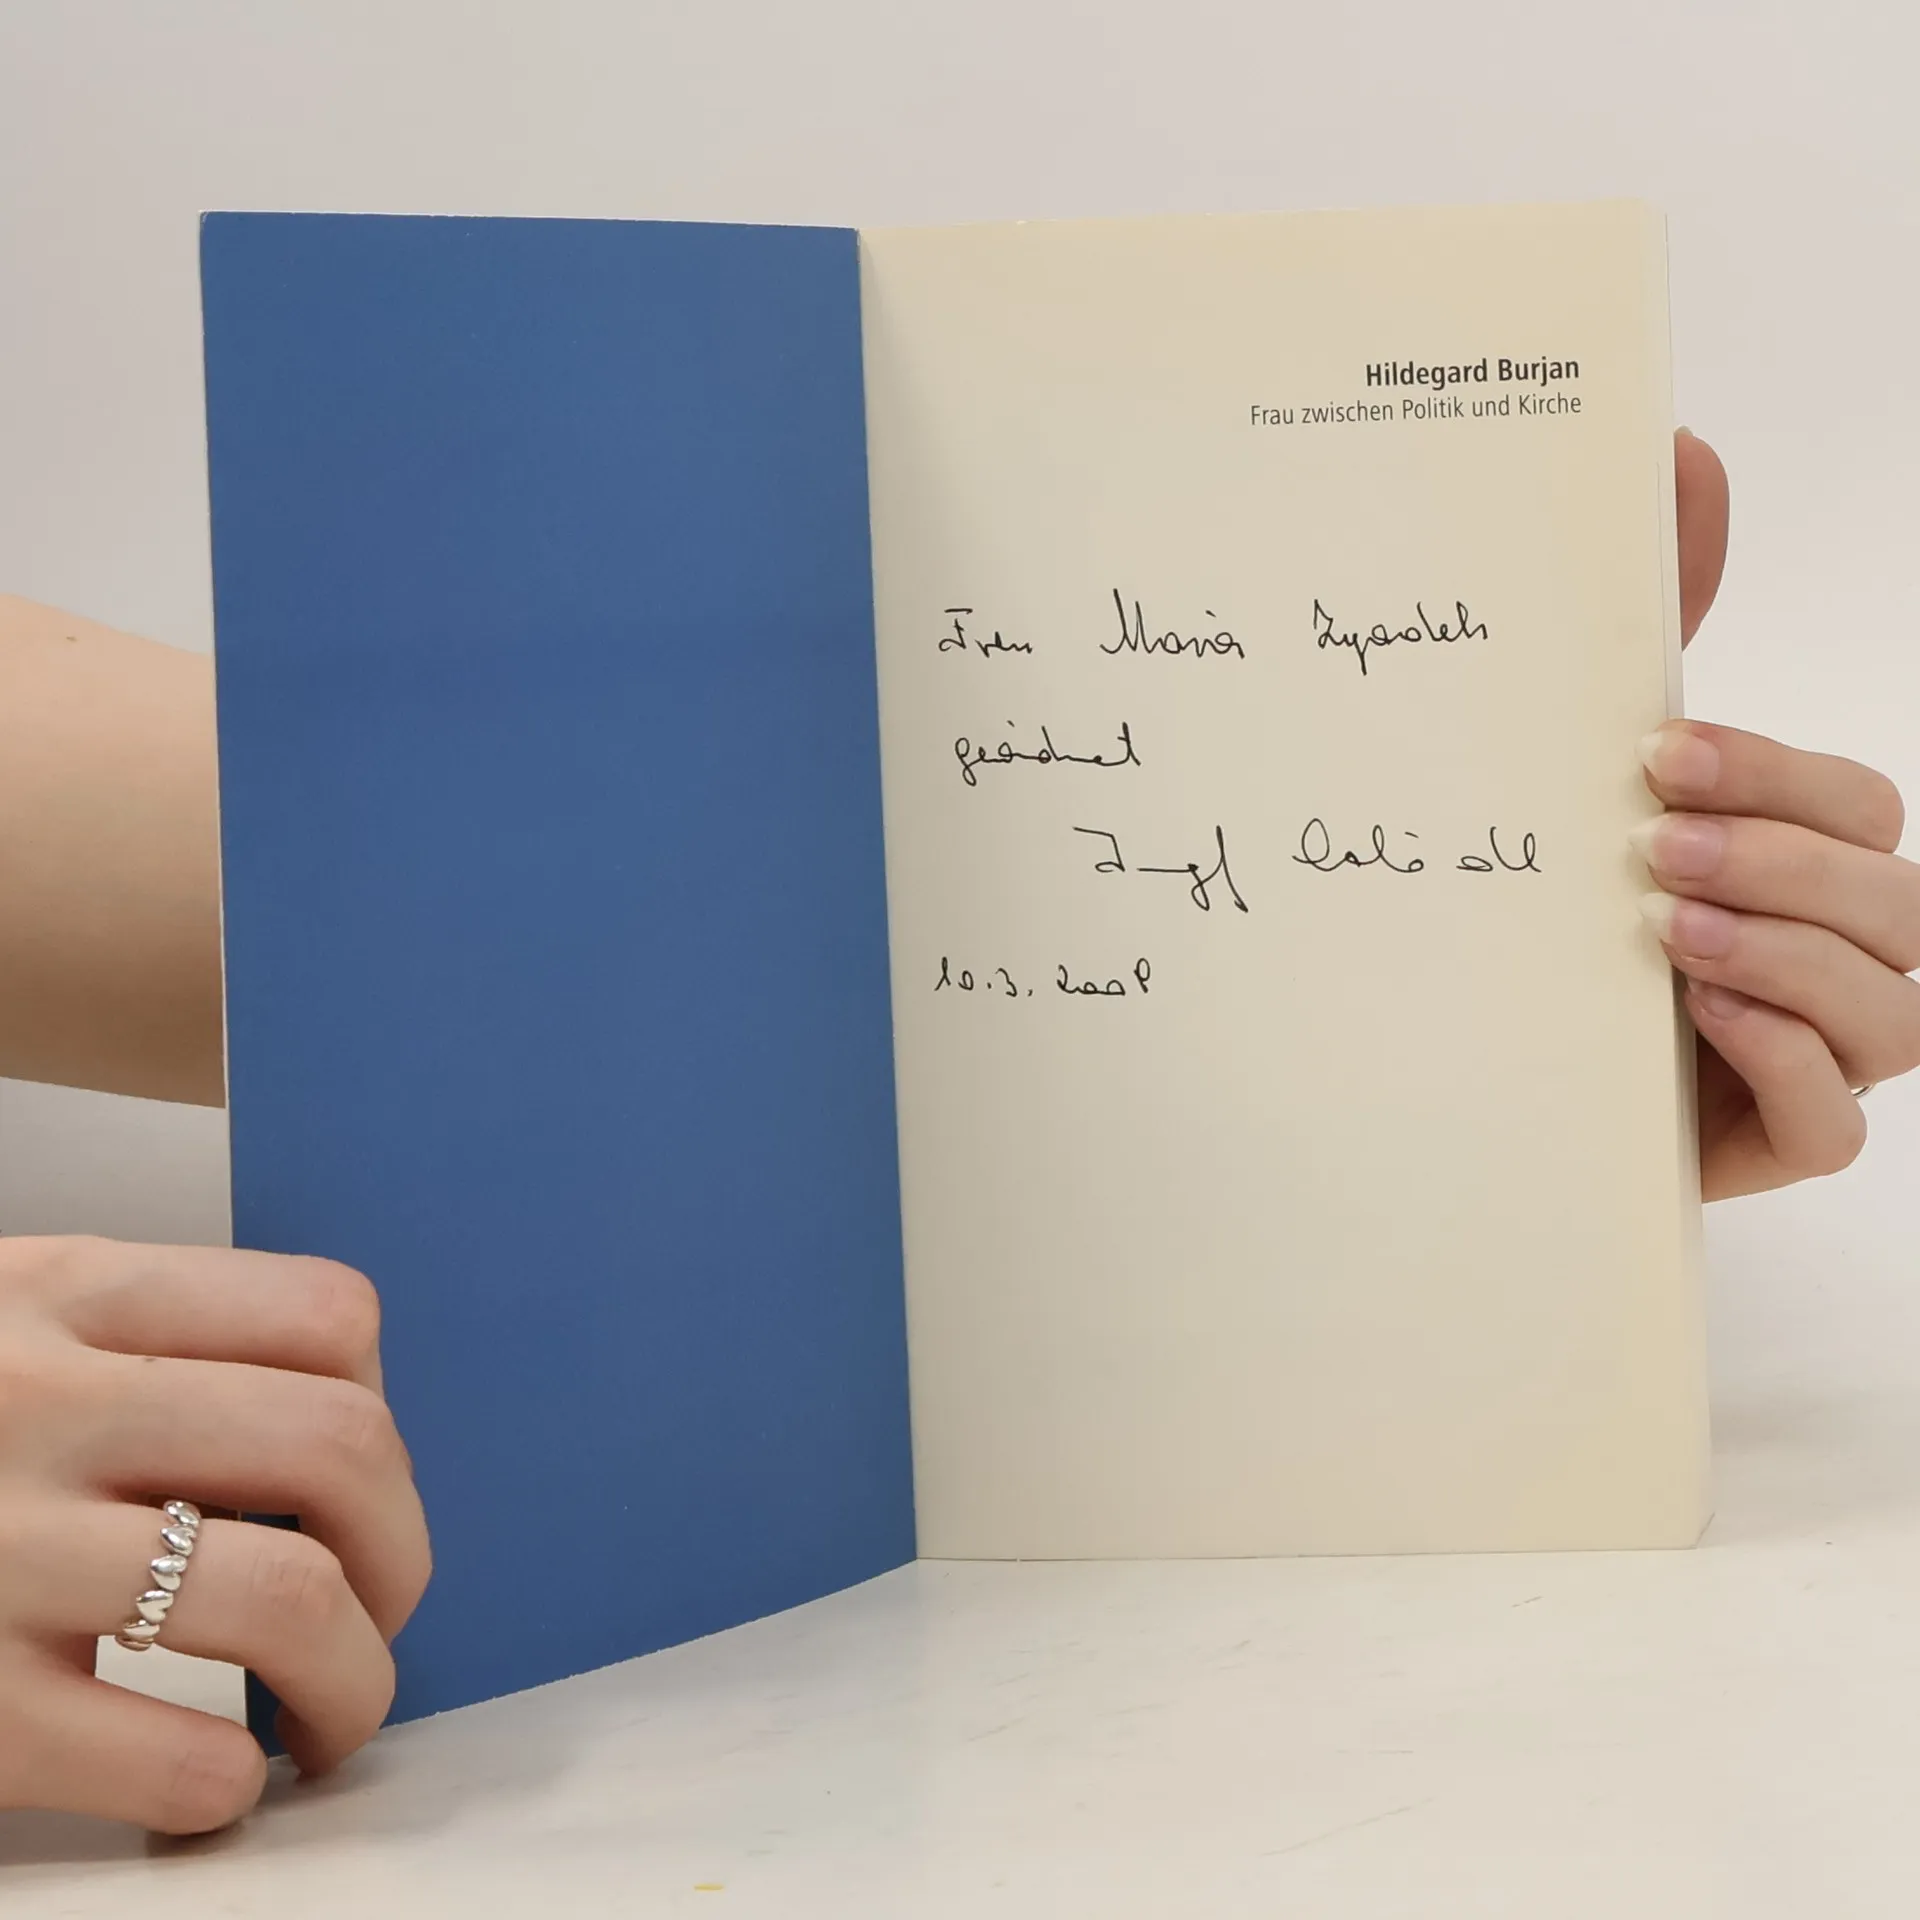 Hildegard Burjan
Frau zwischen Politik und Kirche
Frau Maria
gewidmet
10.3. 2008